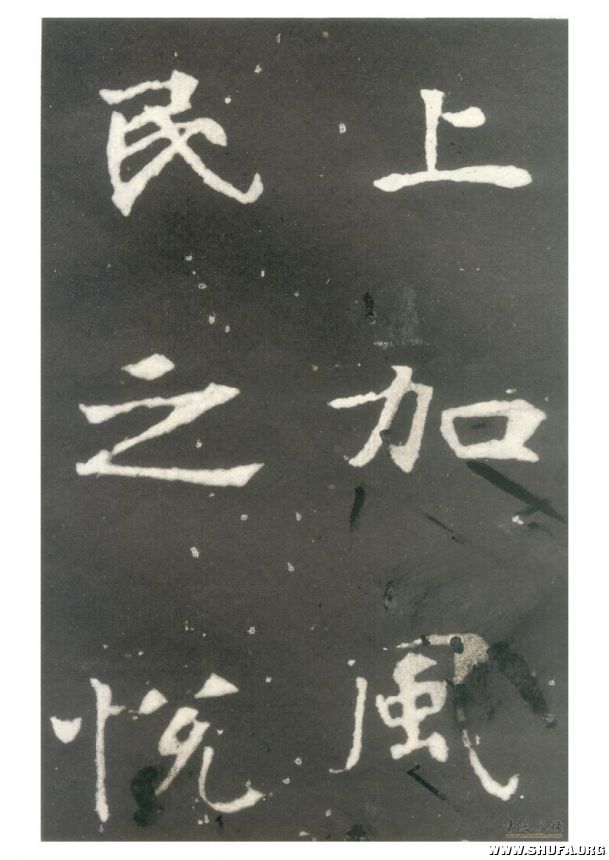 上加風
民之悦
WWW.SHUFA.ORG